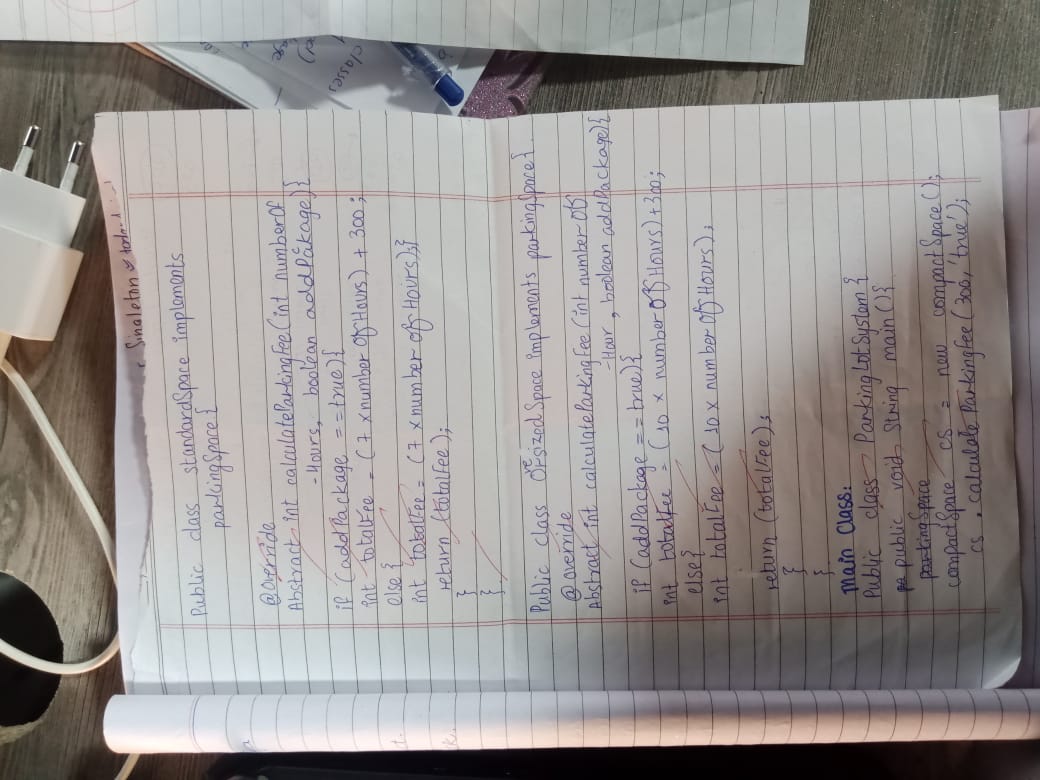 Singleton
Public class standardSpace implements
parkingSpace{
@override
Abstract int calculateParkingFee(int numberOf
-Hours, boolean addPackage){
if (addPackage ==true){
int totalFee = (7 x number Of Hours) + 300;
else {
int totalFee = (7 x number of Hours);}
return (totalFee);
}
}
Public class OversizedSpace implements parkingSpace{
@override
Abstract int calculateParkingFee(int number of
-Hour, boolean addPackage){
if (addPackage ==true){
int totalFee = (10 x number Of Hours)+300;
else{
int totalFee = (10 x number Of Hours);
return (totalFee);
}
}
Main Class:
Public class ParkingLotSystem{
public void String main(){
parkingSpace
compactSpace cs = new compactSpace();
cs. calculateParkingFee(300,'true');
classes